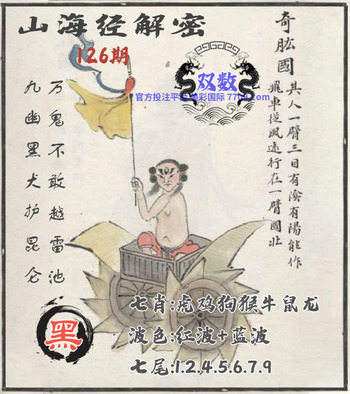 山海经解密
126期
双数
奇肱國
其人一臂三目有陰有陽能作
飛車從風遠行在一臂國北
万鬼不敢越雷池
九幽黑犬护昆仑
黑
七肖:虎鸡狗猴牛鼠龙
波色:红波+蓝波
七尾:1.2,4.5.6.7.9